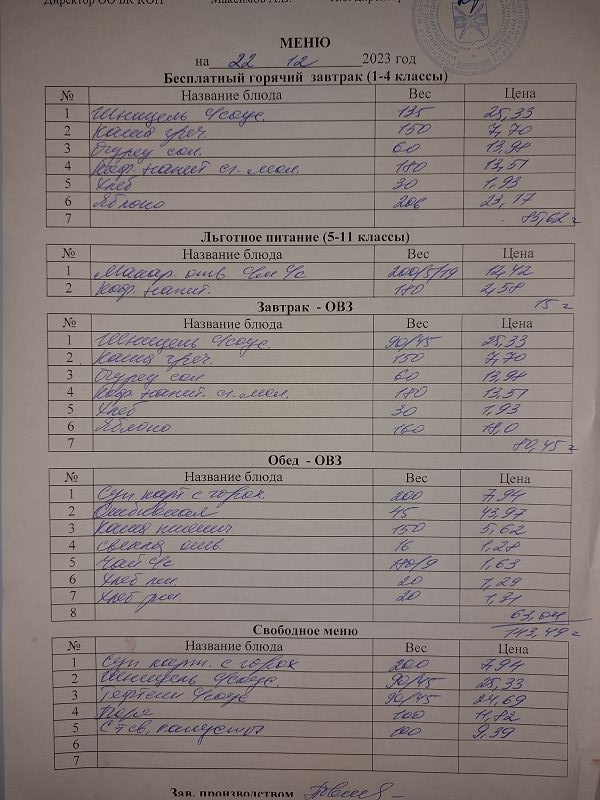 Директор ОО БК КОП Максимов А.В. И.о. директор
МЕНЮ
на 22 12 2023 год
Бесплатный горячий завтрак (1-4 классы)
№ Название блюда Вес Цена
1 Шницель ч/соус. 135 25,33
2 Каша греч. 150 7,70
3 Огурец сол. 60 13,98
4 Коф. напит сг. мол. 180 13,51
5 Хлеб 30 1,93
6 Яблоко 206 23,17
7 85,62
Льготное питание (5-11 классы)
№ Название блюда Вес Цена
1 Макар. отв ч/м ч/с 200/5/19 12,42
2 Коф. напит. 180 2,58
15
Завтрак - ОВЗ
№ Название блюда Вес Цена
1 Шницель ч/соус. 90/45 25,33
2 Каша греч. 150 7,70
3 Огурец сол 60 13,98
4 Коф. напит. сг. мол. 180 13,51
5 Хлеб 30 1,93
6 Яблоко 160 18,0
7 80,45
Обед - ОВЗ
№ Название блюда Вес Цена
1 Суп карт с горох. 200 7,94
2 Отбивная 45 43,97
3 Каша пшенич. 150 5,62
4 свекла отв. 16 1,28
5 Чай ч/с 180/9 1,63
6 Хлеб пш. 20 1,29
7 Хлеб рж. 20 1,31
8 63,04
143,49
Свободное меню
№ Название блюда Вес Цена
1 Суп карт. с горох 200 7,94
2 Шницель ч/соус. 90/45 25,33
3 Тефтели ч/соус 90/45 24,69
4 100 11,82
5 капусты 100 9,39
6
7
Зав. производством